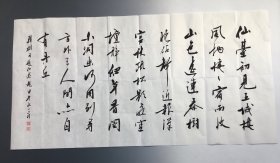 仙臺初見五城樓
風物凄凄宿雨收
山色遥連秦樹
晚砧聲近報漢
宮秋疏松影落空
壇靜細草香閑
小洞幽何用別尋
方外去人間亦自
有丹丘